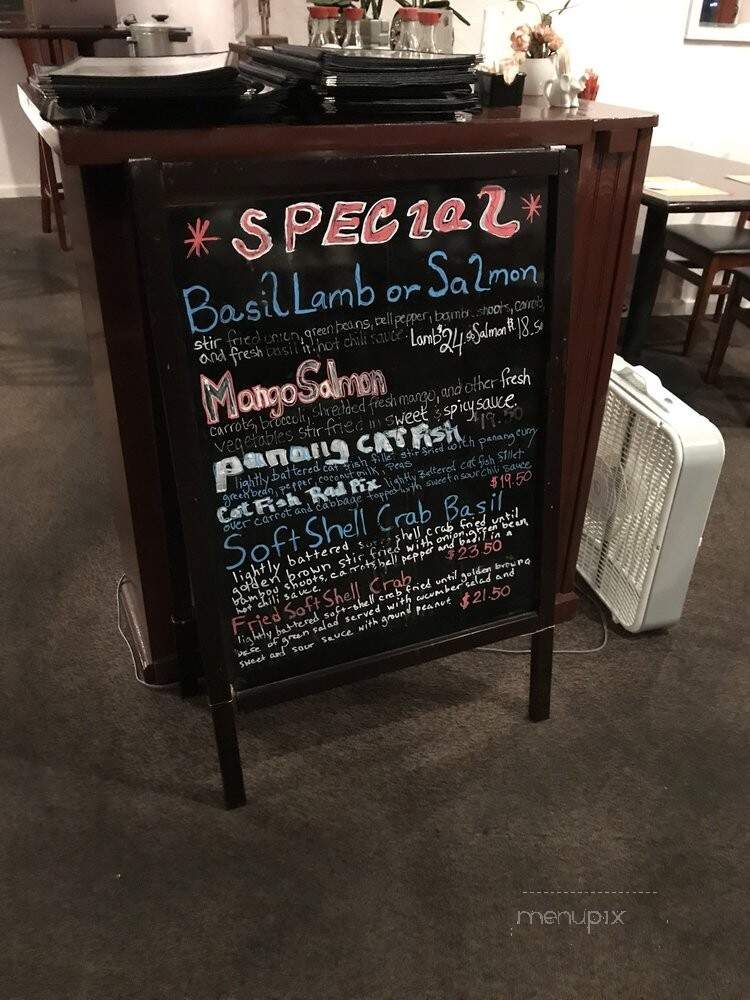 * SPECIAL *
Basil Lamb or Salmon
stir fried onion, green beans, bell pepper, bamboo shoots, carrots,
and fresh basil in hot chili sauce. Lamb $24.50 Salmon $18.50
Mango Salmon
carrots, broccoli, shredded fresh mango, and other fresh
vegetables stir fried in sweet & spicy sauce. 19.50
panang CAT Fish
lightly battered cat fish fillet stir fried with panang curry
green bean, pepper, coconut milk, peas
Cat Fish Rad Pix lightly battered cat fish fillet
over carrot and cabbage topped with sweet n sour chili sauce
$19.50
Soft Shell Crab Basil
lightly battered shell crab fried until
golden brown stir fried with onion, green bean,
bambou shoots, carrots, bell pepper and basil in a
hot chili sauce. $23.50
Fried Soft Shell Crab
lightly battered soft-shell crab fried until golden brown
base of green salad served with cucumber salad and
sweet and sour sauce with ground peanut $21.50
menupix